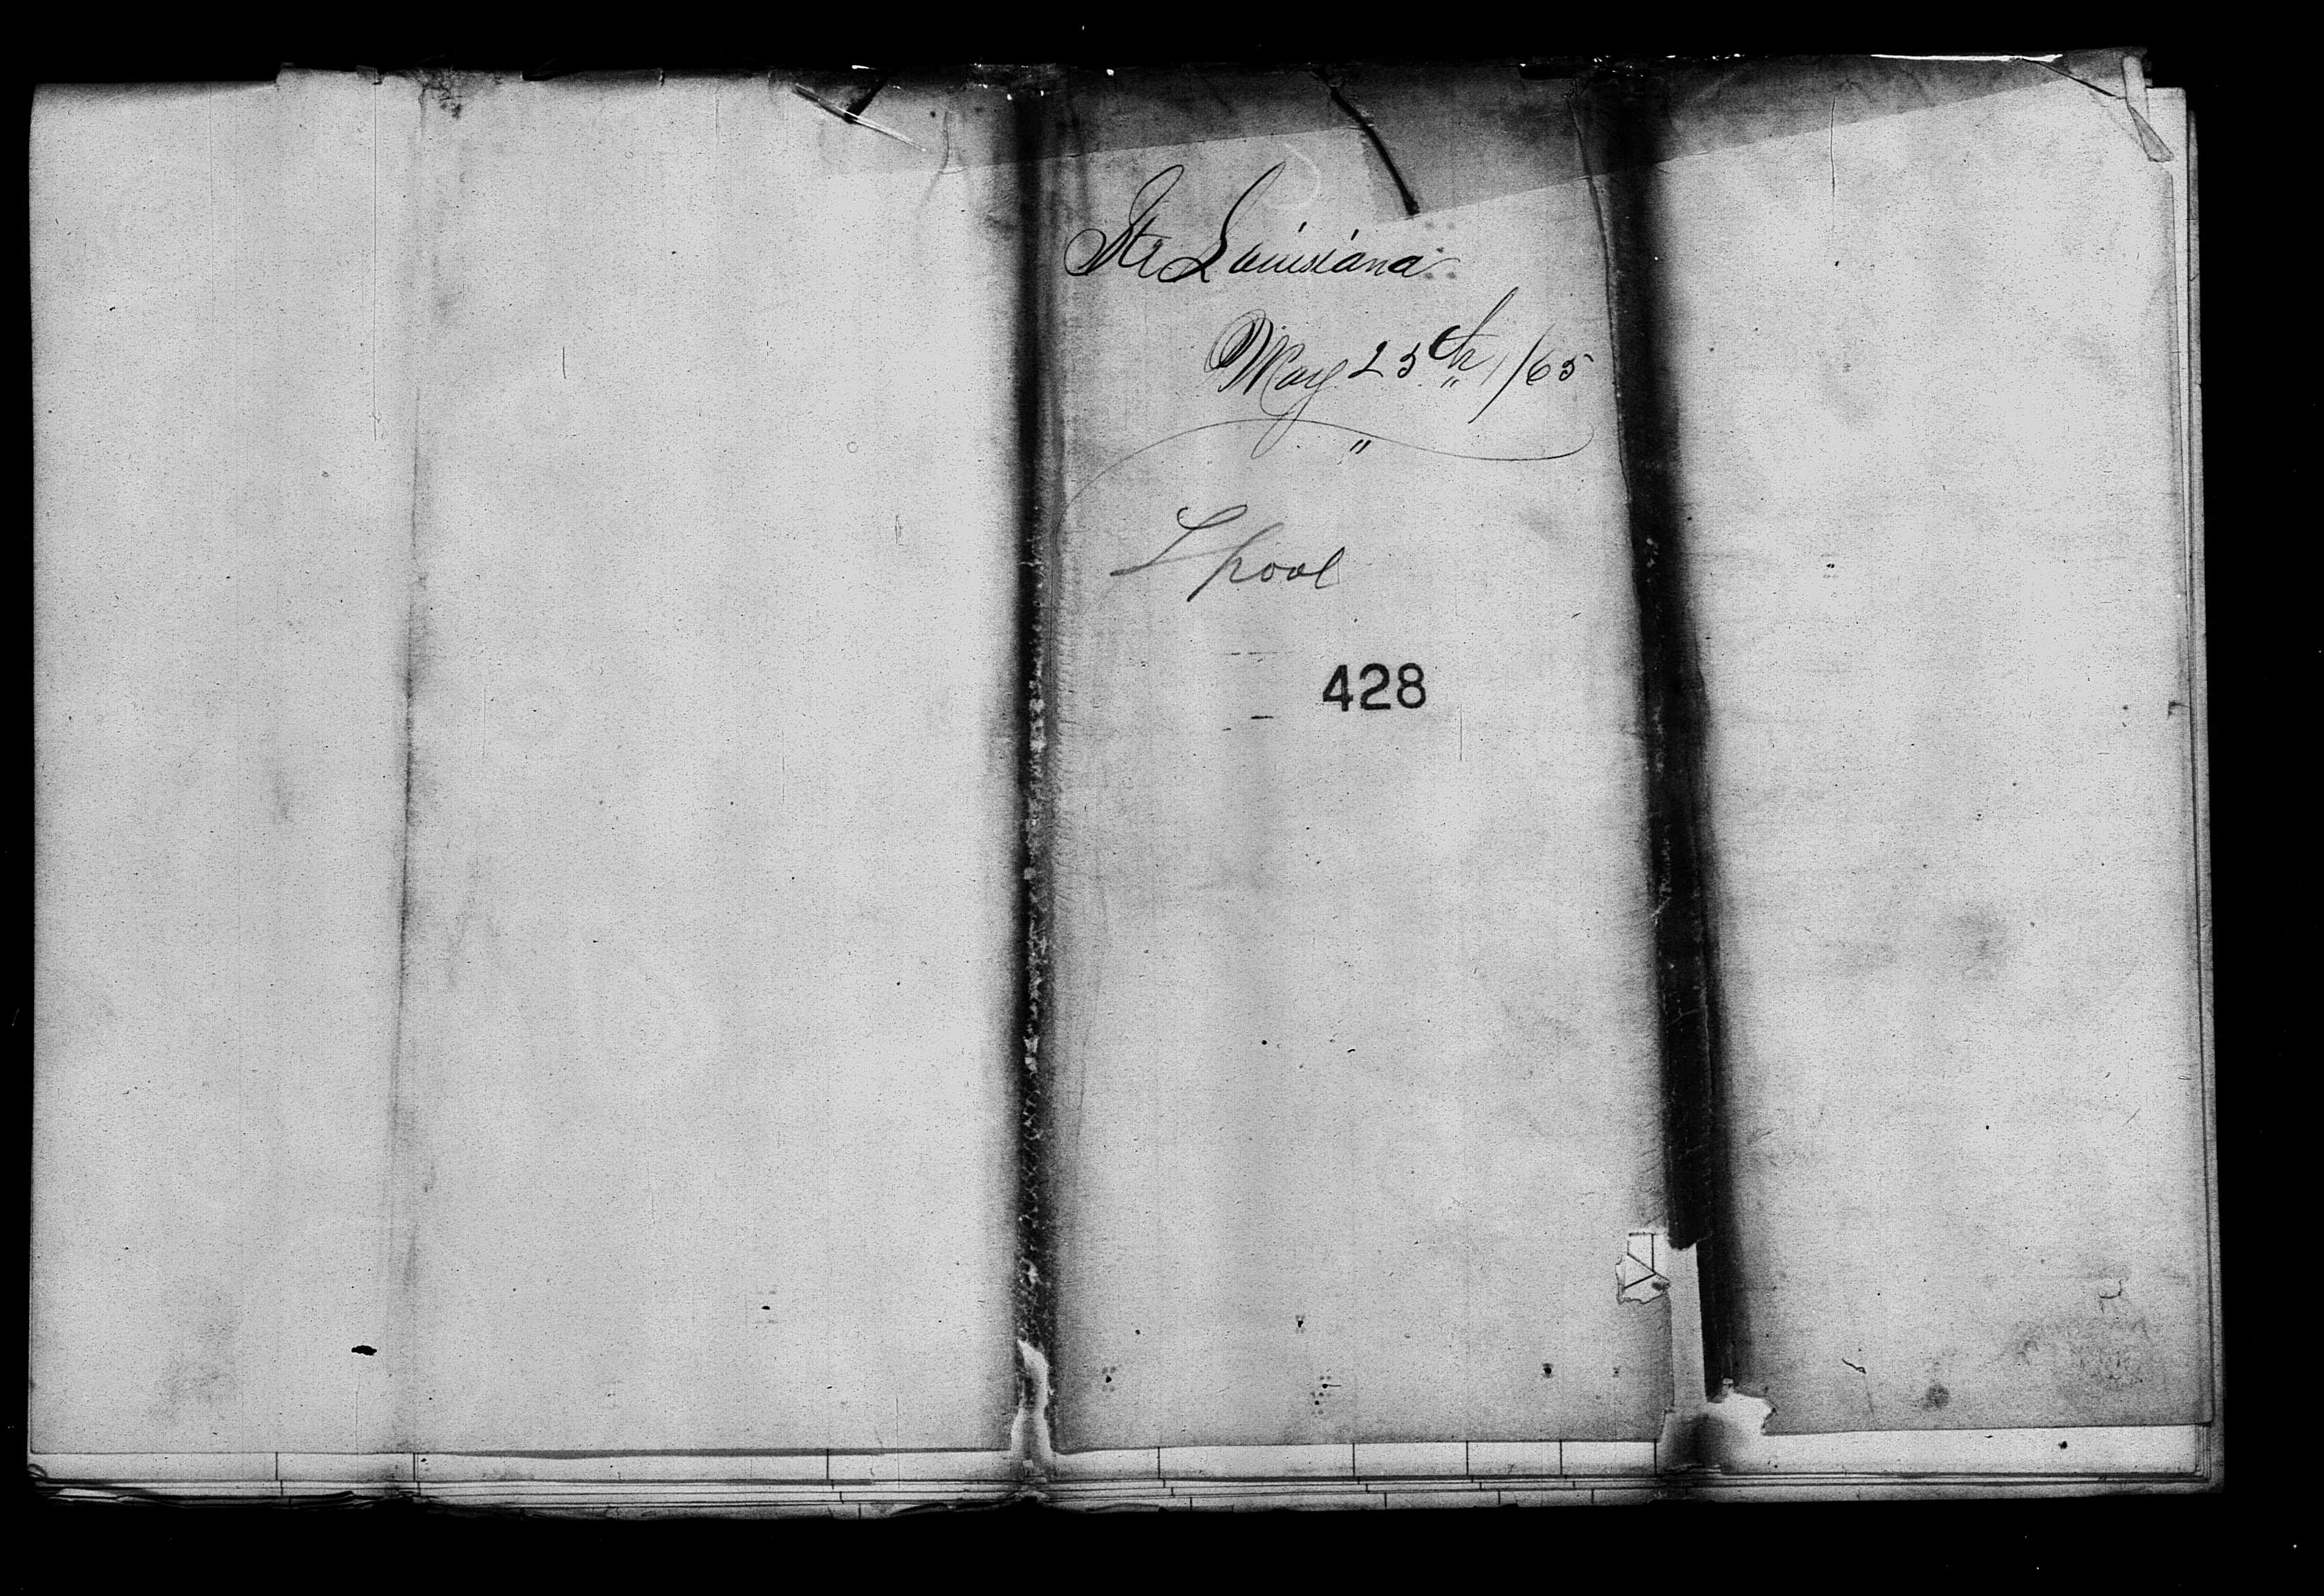 Str Louisiana
May 25th /65
L pool
428